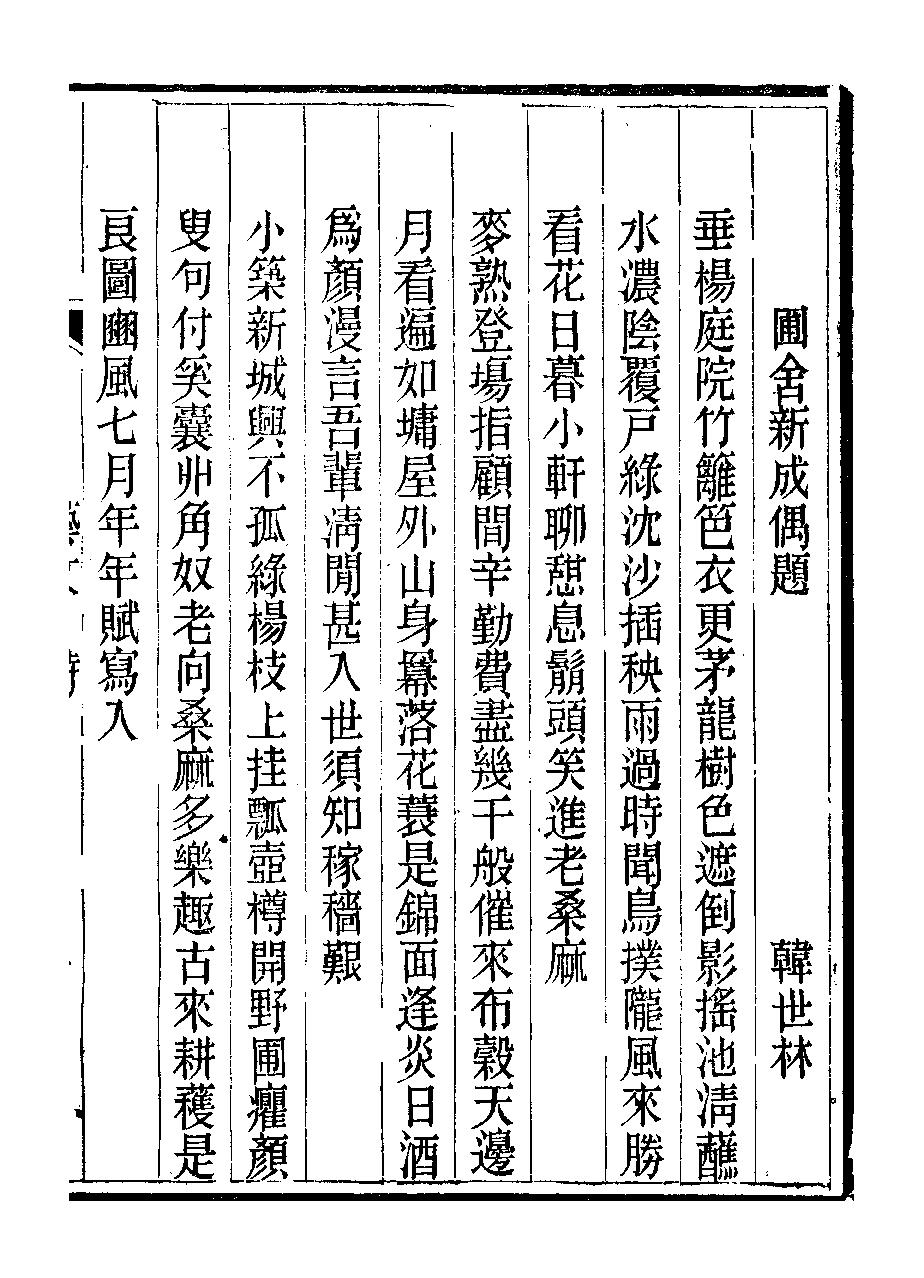 圃舍新成偶題 韓世林
垂楊庭院竹籬笆衣更茅龍樹色遮倒影搖池淸蘸
水濃陰覆戸綠沈沙插秧雨過時聞鳥撲隴風來勝
看花日暮小軒聊憇息鬅頭笑進老桑麻
麥熟登塲指顧間辛勤費盡幾千般催來布穀天邊
月看遍如墉屋外山身羃落花蓑是錦面逢炎日酒
爲顏漫言吾輩淸閒甚入世須知稼穡艱
小築新城興不孤綠楊枝上挂瓢壺樽開野圃癯顏
叟句付奚囊丱角奴老向桑麻多樂趣古來耕穫是
良圖豳風七月年年賦寫入